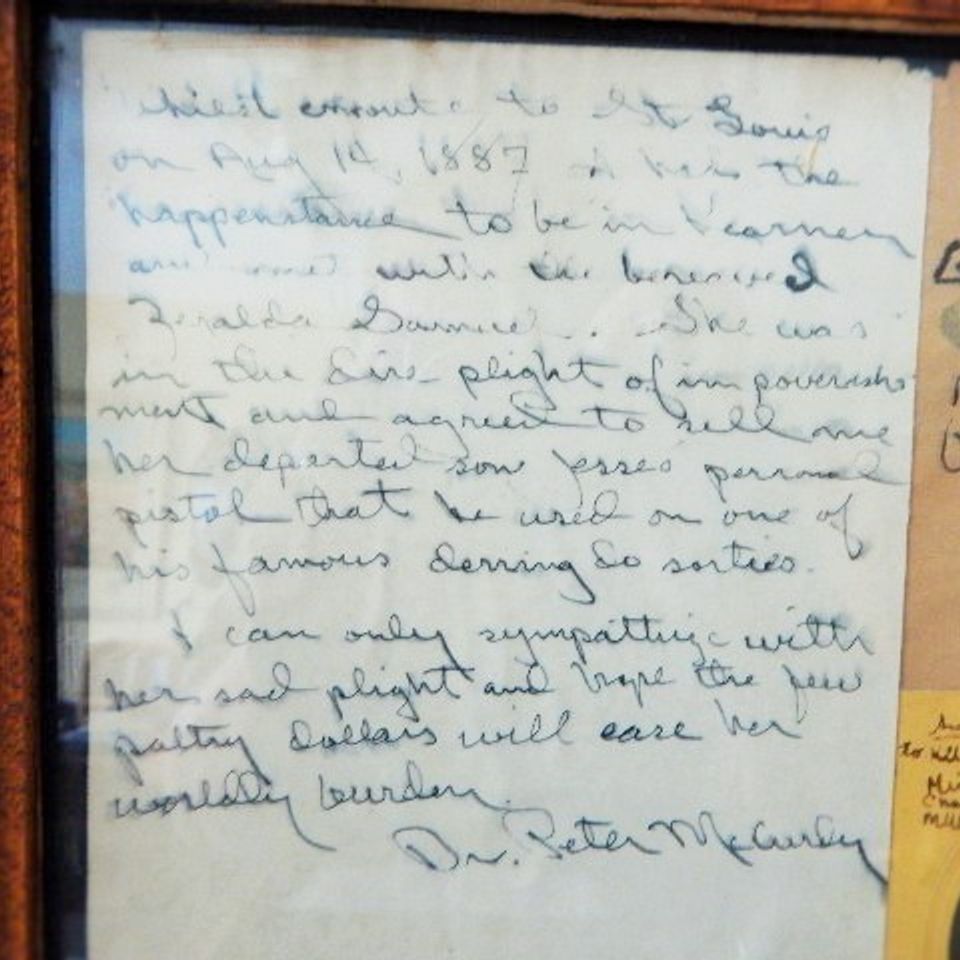 Whilst enroute to St Louis
on Aug 14, 1887 I had the
happenstance to be in Kearney
and met with the bereaved
Zerelda Samuel. She was
in the dire plight of impoverish-
ment and agreed to sell me
her departed son Jesses personal
pistol that he used on one of
his famous derring do sorties.
I can only sympathize with
her sad plight and hope the few
paltry dollars will ease her
worldly burden.
Dr. Peter McCurdy
to